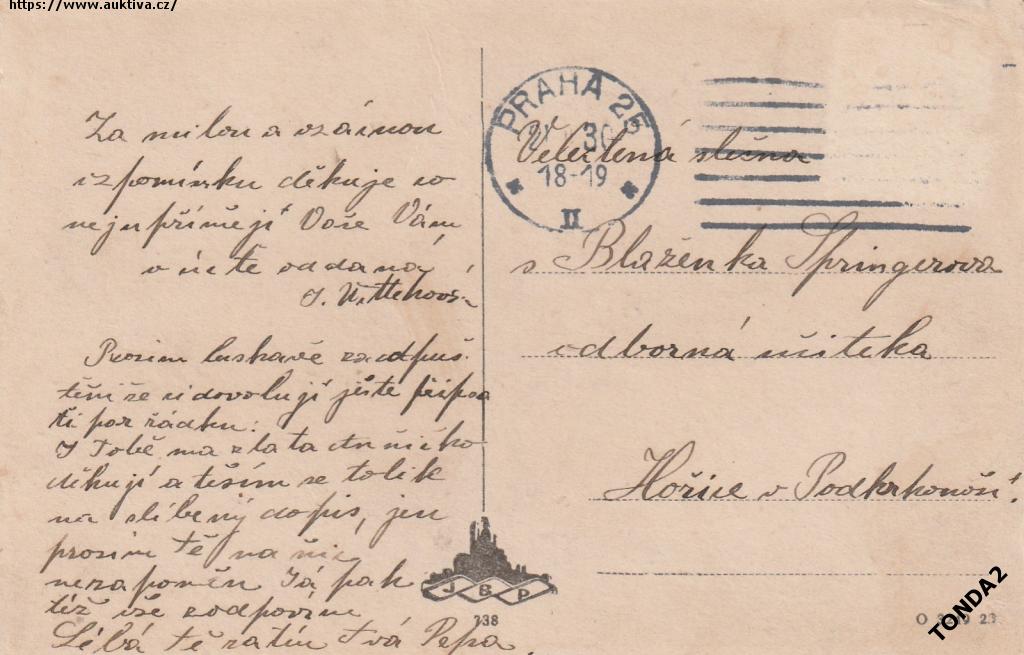 https://www.auktiva.cz/
PRAHA 25
30
18-19
II
Za milou a vzácnou
vzpomínku děkuje co
nejupřímněji Vaše Vám
v úctě oddaná
J.
Prosím laskavě za odpuš-
tění že si dovoluji ještě připsa
ti pár řádků:
I Tobě má zlatá
děkuji a těším se tolik
na slíbený dopis, jen
prosím tě na nic
nezapomeň Já pak
též vše zodpovím
Líbá tě Tvá Pepa.
Velectěná slečna
s Blaženka Springerova
odborná učitelka
Hořice v Podkrkonoší.
J B P
738
TONDA2